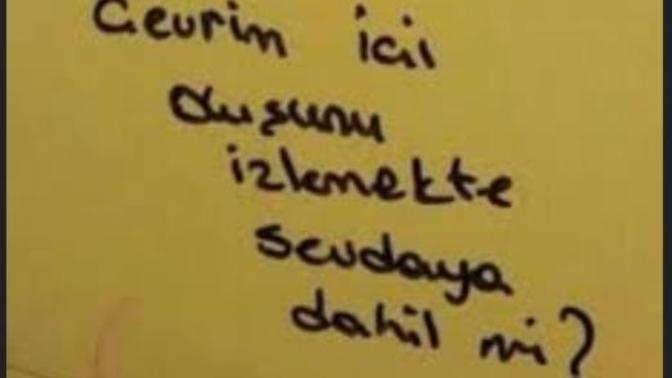 Çevrim içi
oluşunu
izlemekte
sevdaya
dahil mi?